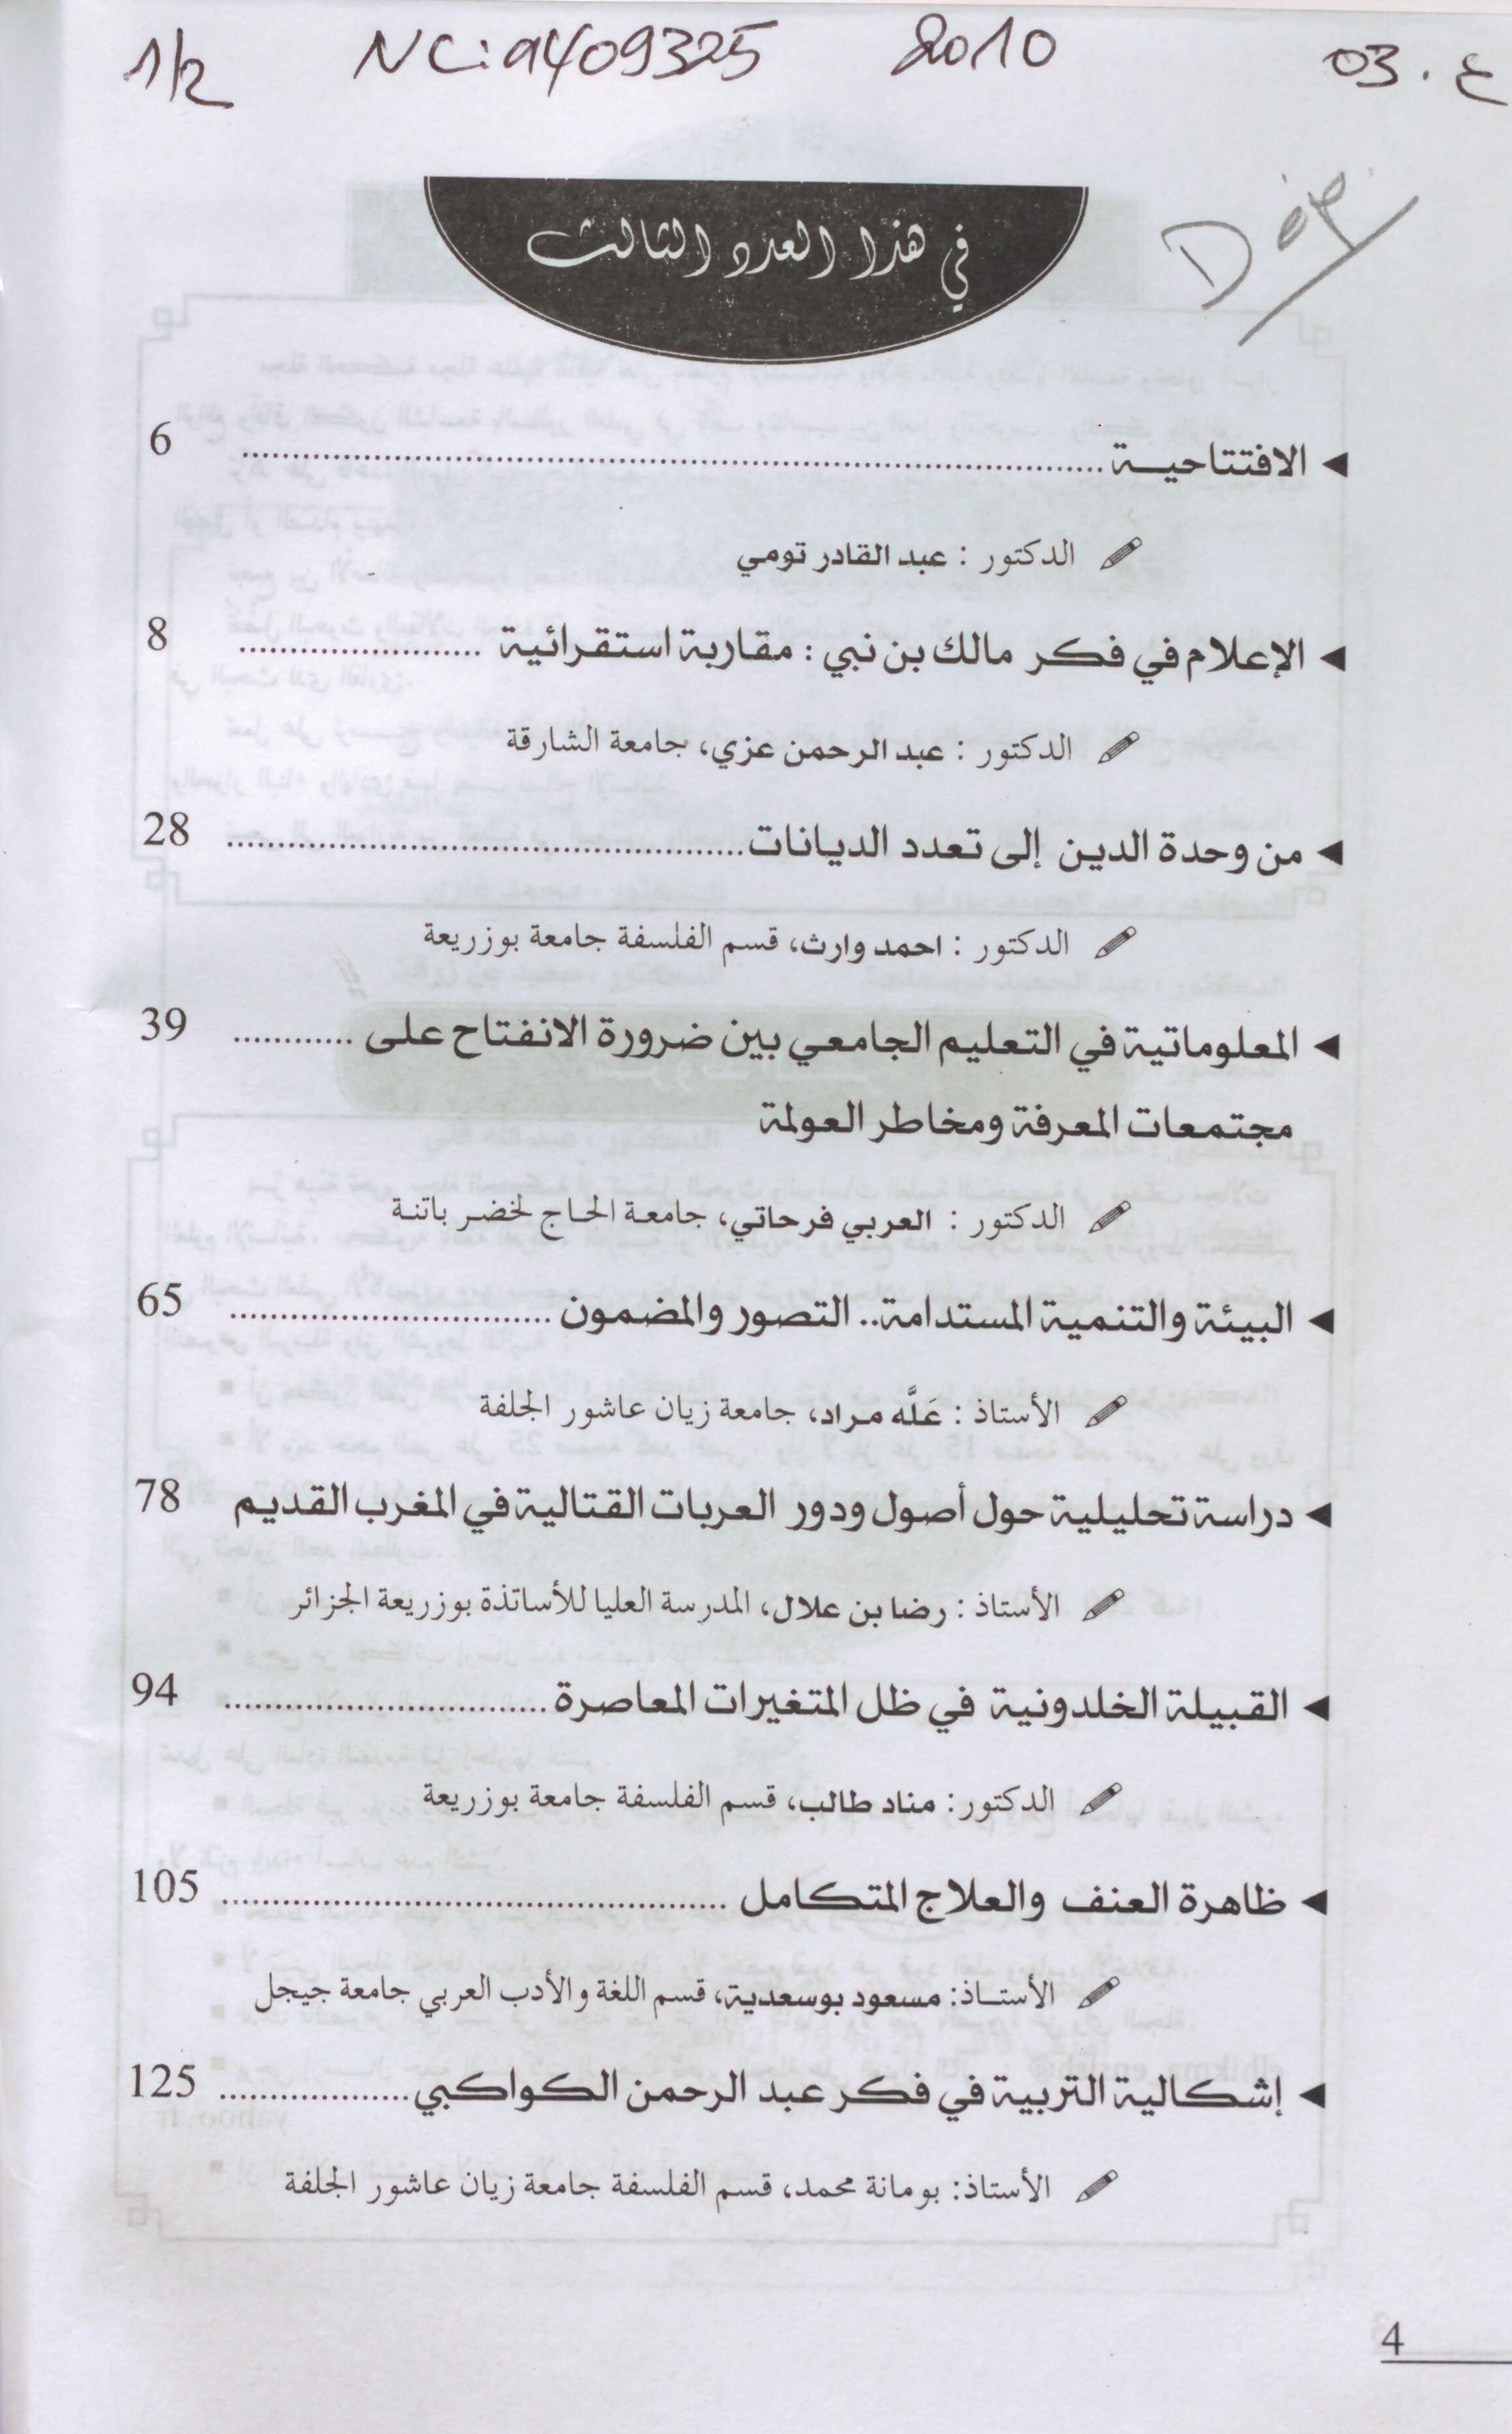 1/2 NC:a409325 2010 ع.03
Dép
في هذا العدد الثالث
◄ الافتتاحيـــة ........ 6
الدكتور : عبد القادر تومي
◄ الإعلام في فكر مالك بن نبي : مقاربة استقرائية ........ 8
الدكتور : عبد الرحمن عزي، جامعة الشارقة
◄ من وحدة الدين إلى تعدد الديانات ........ 28
الدكتور : احمد وارث، قسم الفلسفة جامعة بوزريعة
◄ المعلوماتية في التعليم الجامعي بين ضرورة الانفتاح على ........ 39
مجتمعات المعرفة ومخاطر العولمة
الدكتور : العربي فرحاتي، جامعة الحاج لخضر باتنة
◄ البيئة والتنمية المستدامة.. التصور والمضمون ........ 65
الأستاذ : عَلَّه مراد، جامعة زيان عاشور الجلفة
◄ دراسة تحليلية حول أصول ودور العربات القتالية في المغرب القديم 78
الأستاذ : رضا بن علال، المدرسة العليا للأساتذة بوزريعة الجزائر
◄ القبيلة الخلدونية في ظل المتغيرات المعاصرة ........ 94
الدكتور: مناد طالب، قسم الفلسفة جامعة بوزريعة
◄ ظاهرة العنف والعلاج المتكامل ........ 105
الأستــاذ: مسعود بوسعدية، قسم اللغة والأدب العربي جامعة جيجل
◄ إشكالية التربية في فكر عبد الرحمن الكواكبي ........ 125
الأستاذ: بومانة محمد، قسم الفلسفة جامعة زيان عاشور الجلفة
4